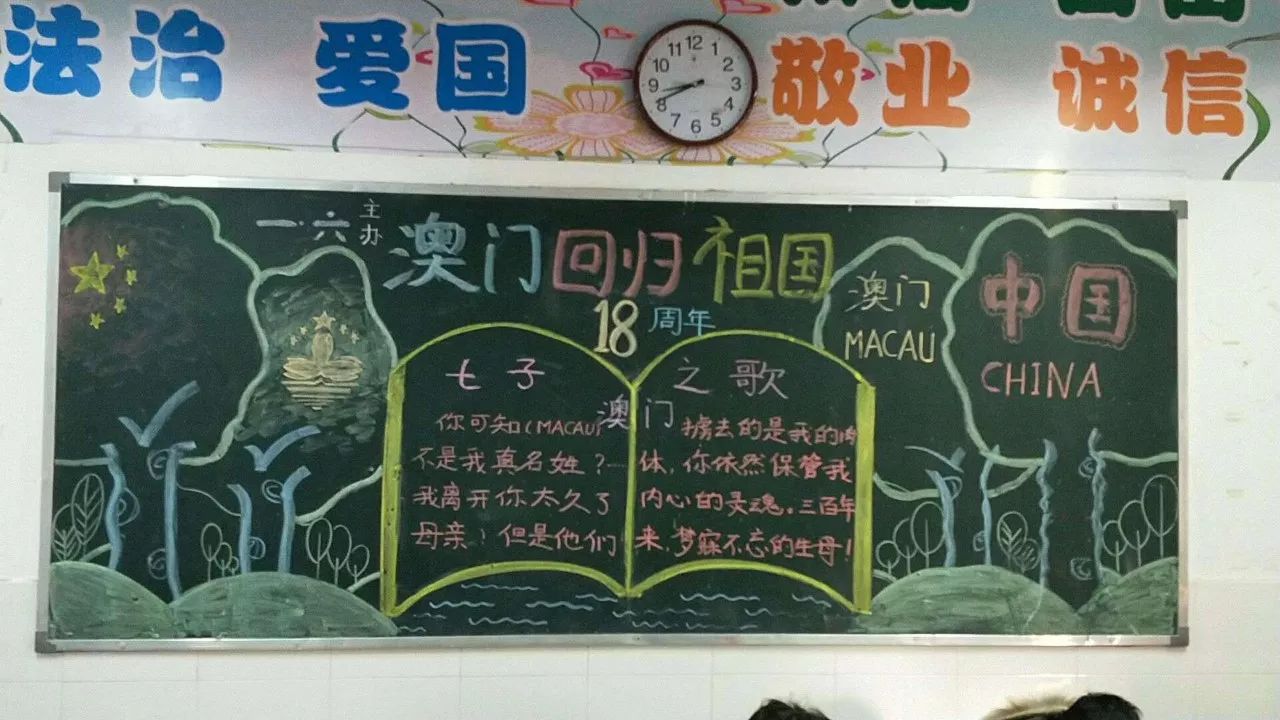 法治 爱国 敬业 诚信
12
1
2
3
4
5
6
7
8
9
10
11
一·六 主办
澳门回归祖国
18周年
七子之歌
澳门
你可知(MACAU)
不是我真名姓？
我离开你太久了
母亲！但是他们
掳去的是我的
体，你依然保管我
内心的灵魂。三百年
来，梦寐不忘的生母！
澳门
MACAU
中国
CHINA